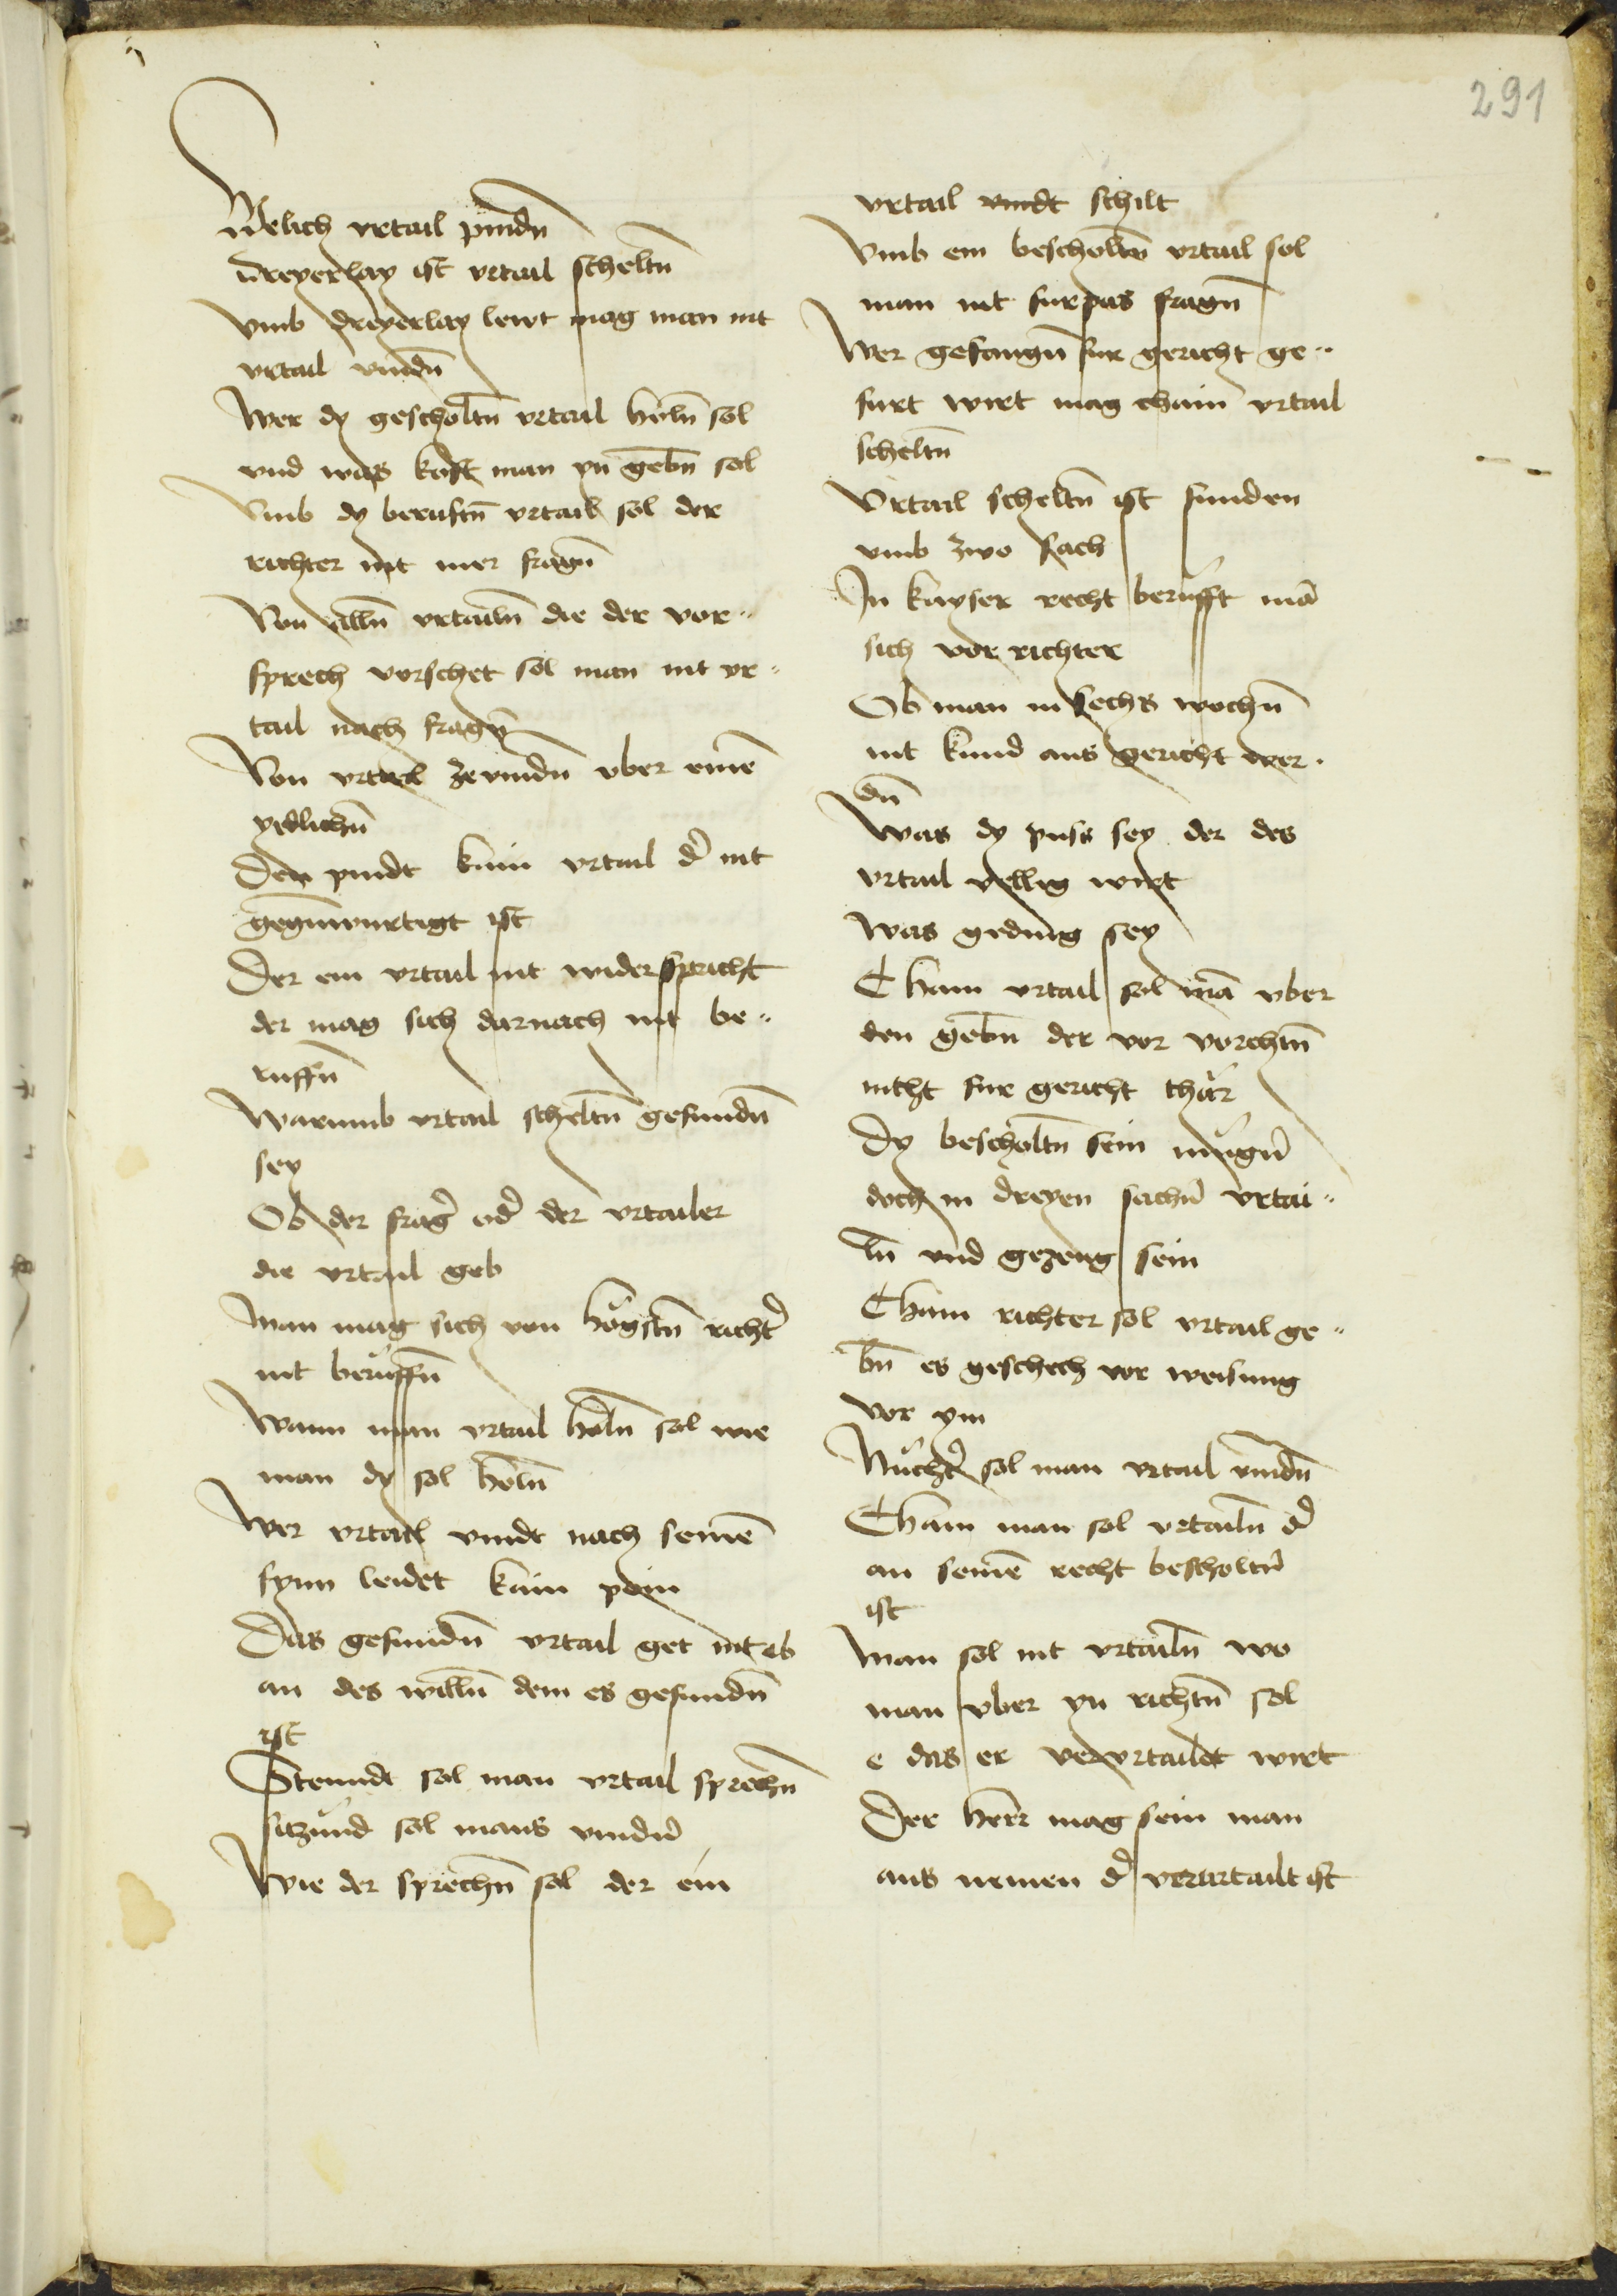 291
Welich vrtail pindn̄
Dreyerlay ist vrtail scheltn̄
Vmb dreyerlay lewt mag man nit
vrtail vindn̄
Wer dy gescholtn̄ vrtail holn̄ sol
vnd was kost man yn gebn̄ sol
Vmb dy beruftn̄ vrtail sol der
richter nit mer fragn̄
Von alln̄ vrtailn̄ die der vor¨
sprech vorschet sol man nit vr¨
tail nach fragn̄
Von vrtail zevindn̄ vber einē
ydlichn̄
Den pindt kain vrtail d' nit
gegnwurtigt ist
Der ein vrtail nit widerspricht
der mag sich darnach nit be¨
ruffn̄
Warumb vrtail scheltn̄ gefundn̄
sey
Ob der frag' od' der vrtailer
die vrtail geb
Man mag sich von hogstn̄ richt'
nit beruffn̄
Wann man vrtail holn̄ sol wie
man dy sol holn̄
Wer vrtail vindt nach seinē
synn leidet kain pein
Das gefundn̄ vrtail get nit ab
an des willn̄ dem es gefundn̄
ist
Steundt sol man vrtail sprechn̄
sitzund sol mans vindn̄
Wie der sprechn̄ sol der ein
vrtail vindt schilt
Vmb ein bescholtn̄ vrtail sol
man nit furpas fragn̄
Wer gefangn̄ fur gericht ge¨
furt wirt mag chain vrtail
scheltn̄
Vrtail scheltn̄ ist funden
vmb zwo sach
In kayser recht berufft mā
sich vor richter
Ob man in sechs wochn̄
nit kund aus gericht wer¨
dn̄
Was dy puss sey der des
vrtail vellig wirt
Was geding sey
Chain vrtail sol mā vber
den gebn̄ der vor vorchtn̄
nicht fur gericht thar
Dy bescholtn̄ sein mugn̄
doch in dreyen sachn̄ vrtai¨
ln̄ vnd gezeug sein
Chain richter sol vrtail ge¨
bn̄ es geschech vor weisung
vor ym
Nucht' sol man vrtail vindn̄
Chain man sol vrtailn̄ d'
an seinē recht bescholtn̄
ist
Man sol nit vrtailn̄ wo
man vber yn richtn̄ sol
e das er verurtailt wirt
Der herr mag sein man
aus nemen d' verurtailt ist